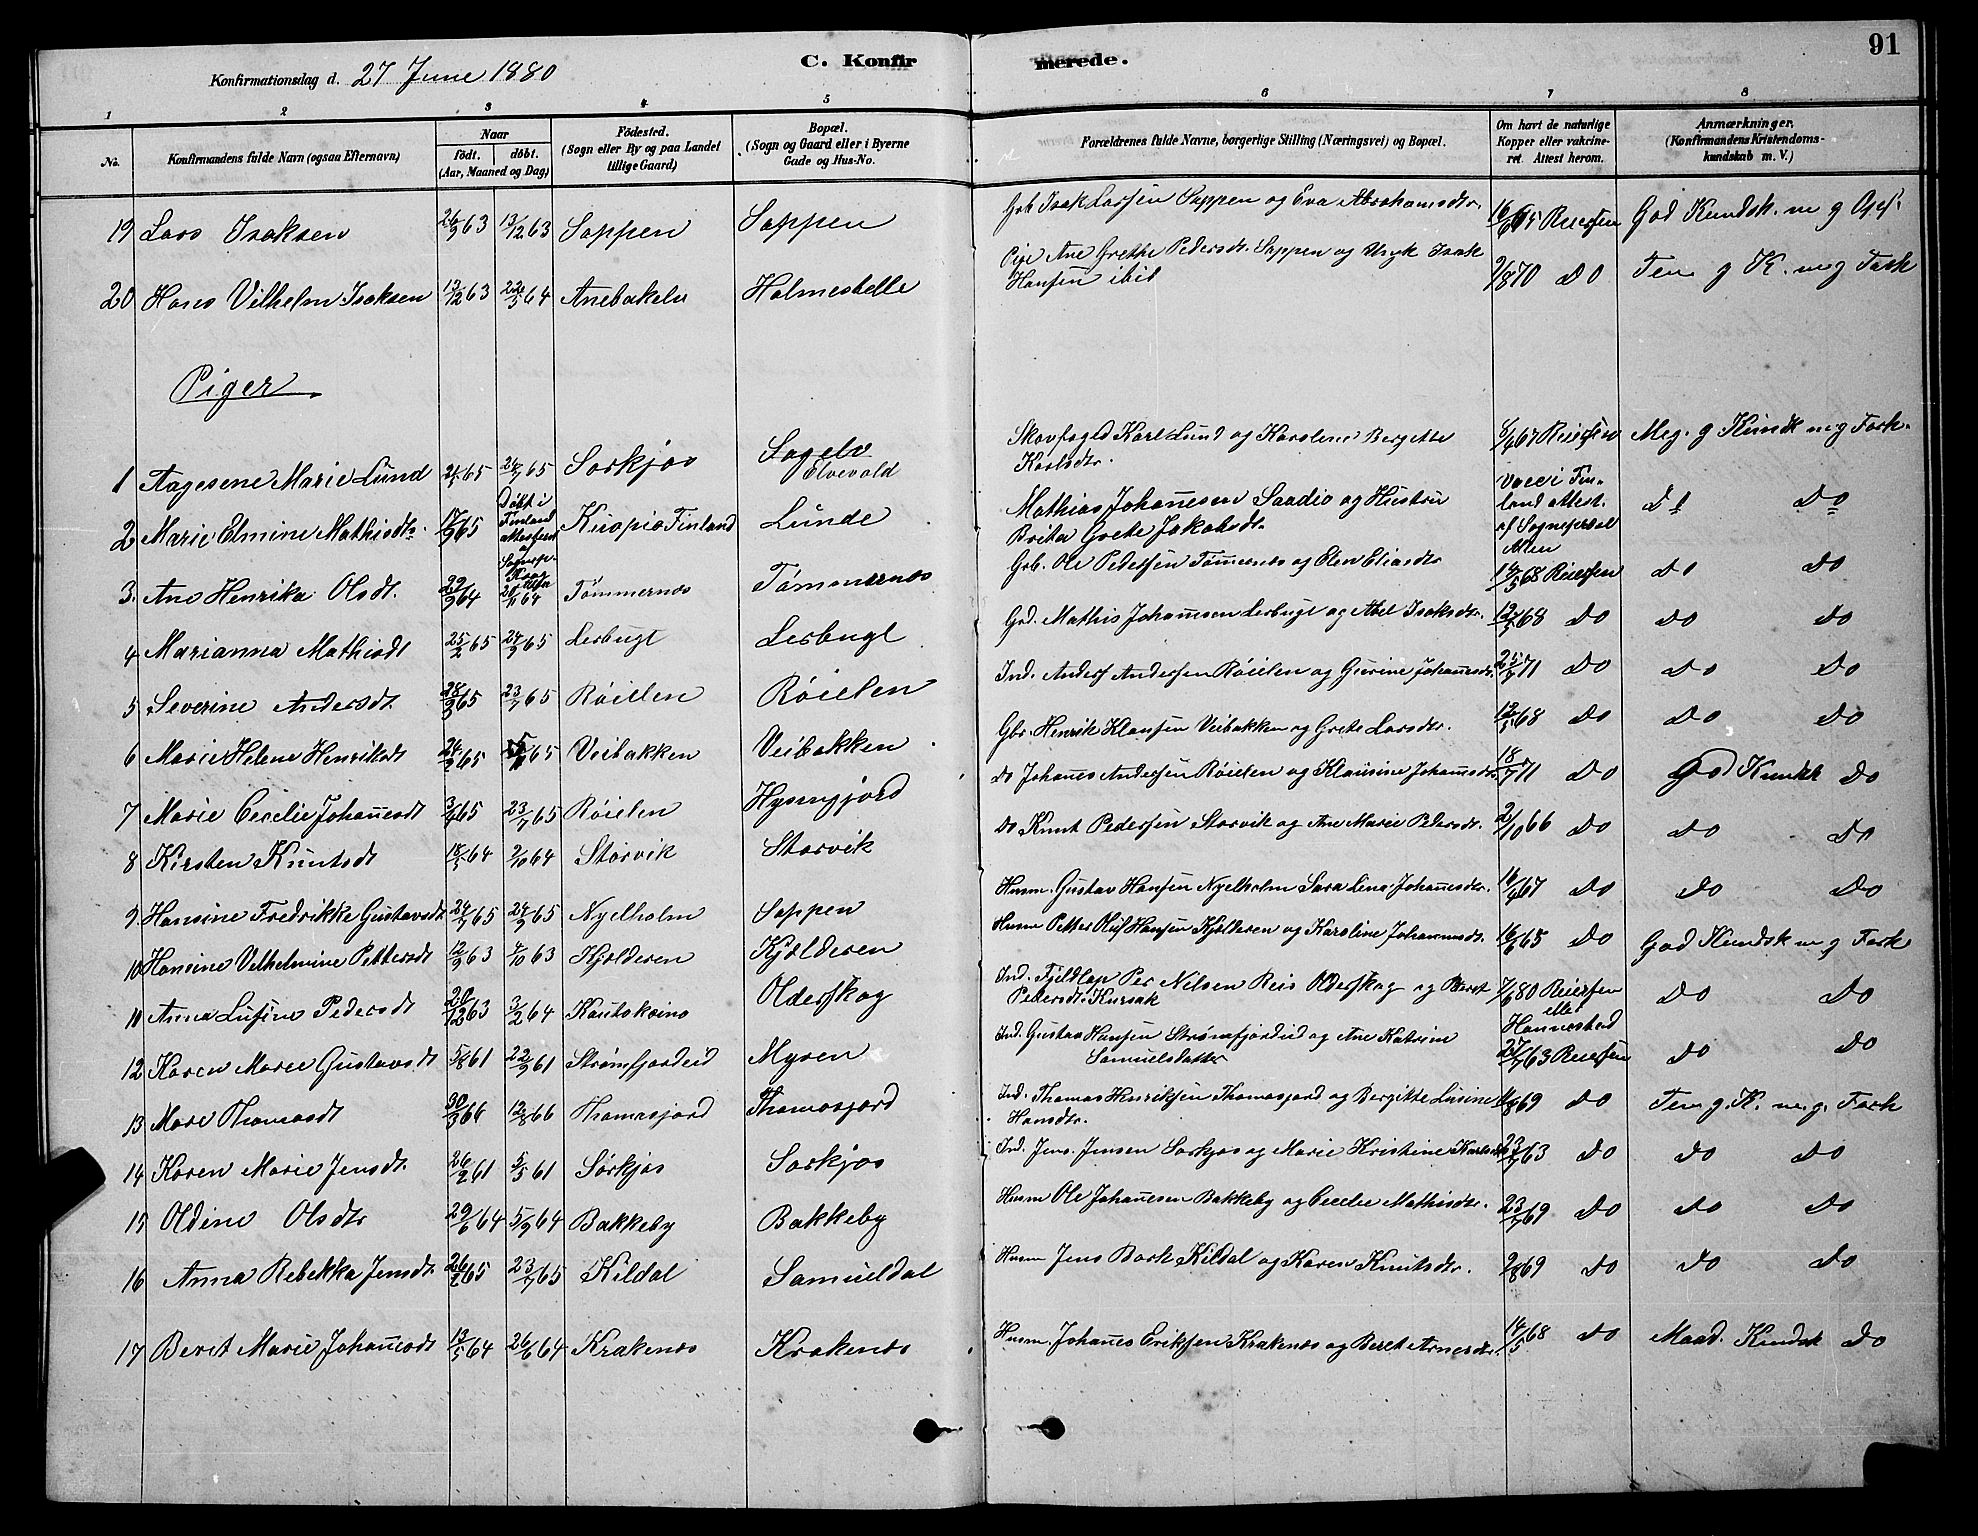 91
C. Konfirmerede.
Konfirmationsdag d. 27 June 1880
1 2 3 4 5 6 7 8
No.
Konfirmandens fulde Navn (ogsaa Efternavn)
Naar født. døbt. (Aar, Maaned og Dag)
Födested. (Sogn eller By og paa Landet tillige Gaard)
Bopæl. (Sogn og Gaard eller i Byerne Gade og Hus-No.
Forældrenes fulde Navne, borgerlige Stilling (Næringsvei) og Bopæl.
Om havt de naturlige Kopper eller vakcineret. Attest herom.
Anmærkninger. (Konfirmandens Kristendomskundskab m. V.)
19 Lars Isaksen 26/9 63 13/12 63 Sappen Sappen Gbr Isak Larsen Sappen og Eva Abrahamsdtr. 16/6 65 Reiersen God Kundsk. m g
20 Hans Vilhelm Isaksen 13/12 63 22/5 64 Holmestelle Pige Ane Grethe Pedersdt. Sappen og Isak Hansen ibid 9/8 70 do Tem g K. m g Fork
Piger
1 Aagesene Marie Lund 65 24/7 65 Sørkjos Sagelv Elvevold Skovfoged Karl Lund og Karoline Bergitte Karlsdtr. 8/6 67 Reiersen Meg. g Kundsk m g Fork.
2 Marie Elmine Mathisdt. 17/9 65 Døbt i Finland attesteret af Finland Lunde Mathias Johannesen Saadio og Hustru Brita Grete Jakobsdt. vacci Finland attest. af do do
3. Ane Henrika Olsdt. 22/9 64 20/11 64 Tømmernes Tømmernes Gbr. Ole Pedersen Tømernes og Elen Eliasdtr 14/5 68 Reiersen do do
4 Marianna Mathisdt 25/2 65 24/9 65 Lerbugt Lerbugt Mathis Johannesen Lerbugt og Abel Isaksdtr. 12/5 68 do do do
5 Severine Andersdt 65 23/7 65 Røielen Røielen Ind. Anders Andersen Røielen og Gurine Johannesdt. 25/7 71 do do do
6 Marie Helene Henriksdt 24/2 65 65 Veibakken Veibakken Gbr. Henrik Klausen Veibakken og Grete Larsdtr. 12/5 68 do do do
7 Marie Cecelie Johannesdt 3/6 65 23/7 65 Røielen do Johanes Andersen Røielen og Klausine Johannesdt 18/7 71 do God Kundsk do
8 Kirsten Knutsdt 18/5 64 2/10 64 Storvik Storvik do Knut Pedersen Storvik og Ane Marie Pedersdt. 2/10 66 do do do
9. Hansine Fredrikke Gustavsdt 24/7 65 24/9 65 Nyelholm Sappen Husm. Gustav Hansen Nyelholm Sara Lina Johannesdtr. 16/6 67 do do do
10 Hansine Vilhelmine Pettersdt 12/9 63 4/10 63 Kjølderen Kjølderen Husm Petter Oluf Hansen Kjølderen og Karoline Johannesdt. 16/6 65 do God Kundsk m g Fork
11 Anna Lusine Pedersdt 20/12 63 3/2 64 Kautokeino Olderskog Ind. Fjeldlap Per Nilsen Reis Olderskog og Beret Pedersdt. 7/6 80 Reiersen eller Hannestad do do
12 Karen Marie Gustavsdt 5/8 61 22/9 61 Strømfjordeid Myren Ind. Gustav Hansen Strømfjordeid og Ane Katrine Samuelsdatter 27/7 63 Reiersen do do
13 Mari Thomasdt 30/3 66 12/8 66 Thomasjord Thomasjord Ind. Thomas Henriksen Thomasjord og Bergitte Lusine Hansdtr. 69 do Tem g. K. m. g. Fork
14 Karen Marie Jensdt. 26/2 61 5/5 61 Sørkjos Sørkjos Ind. Jens Jensen Sørkjos og Marie Kristine 63 do do do
15 Oldine Olsdtr 29/6 64 5/9 64 Bakkeby Bakkeby Husm Ole Johannesen Bakkeby og Cecelie Mathisdtr. 23/7 69 do do do
16 Anna Rebekka Jensdt. 26/2 65 23/7 65 Kildal Samueldal Husm Jens Bork Kildal og Karen Knutsdtr. 2/8 69 do do do
17 Berit Marie Johannesdt 13/5 64 26/6 64 Krakenes Krakenes Husm. Johanes Eriksen Krakenes og Beret Arnesdtr. 14/5 68 do Maad. Kundsk do